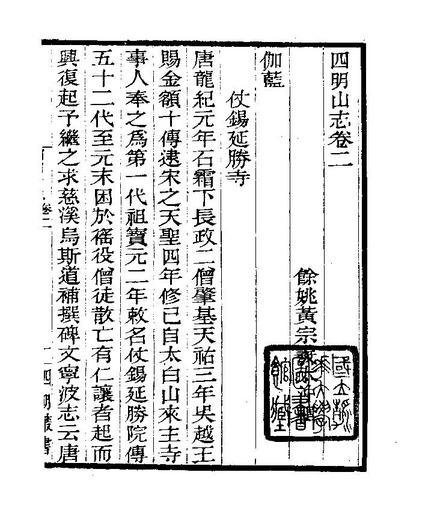 四明山志卷二
餘姚黃宗羲
伽藍
仗錫延勝寺
唐龍紀元年石霜下長政二僧肇基天祐三年吳越王
賜金額十傳逮宋之天聖四年修已自太白山來主寺
事人奉之為第一代祖寶元二年敕名仗錫延勝院傳
五十二代至元末困於徭役僧徒散亡有仁讓者起而
興復起予繼之求慈溪烏斯道補撰碑文寧波志云唐
四明叢書